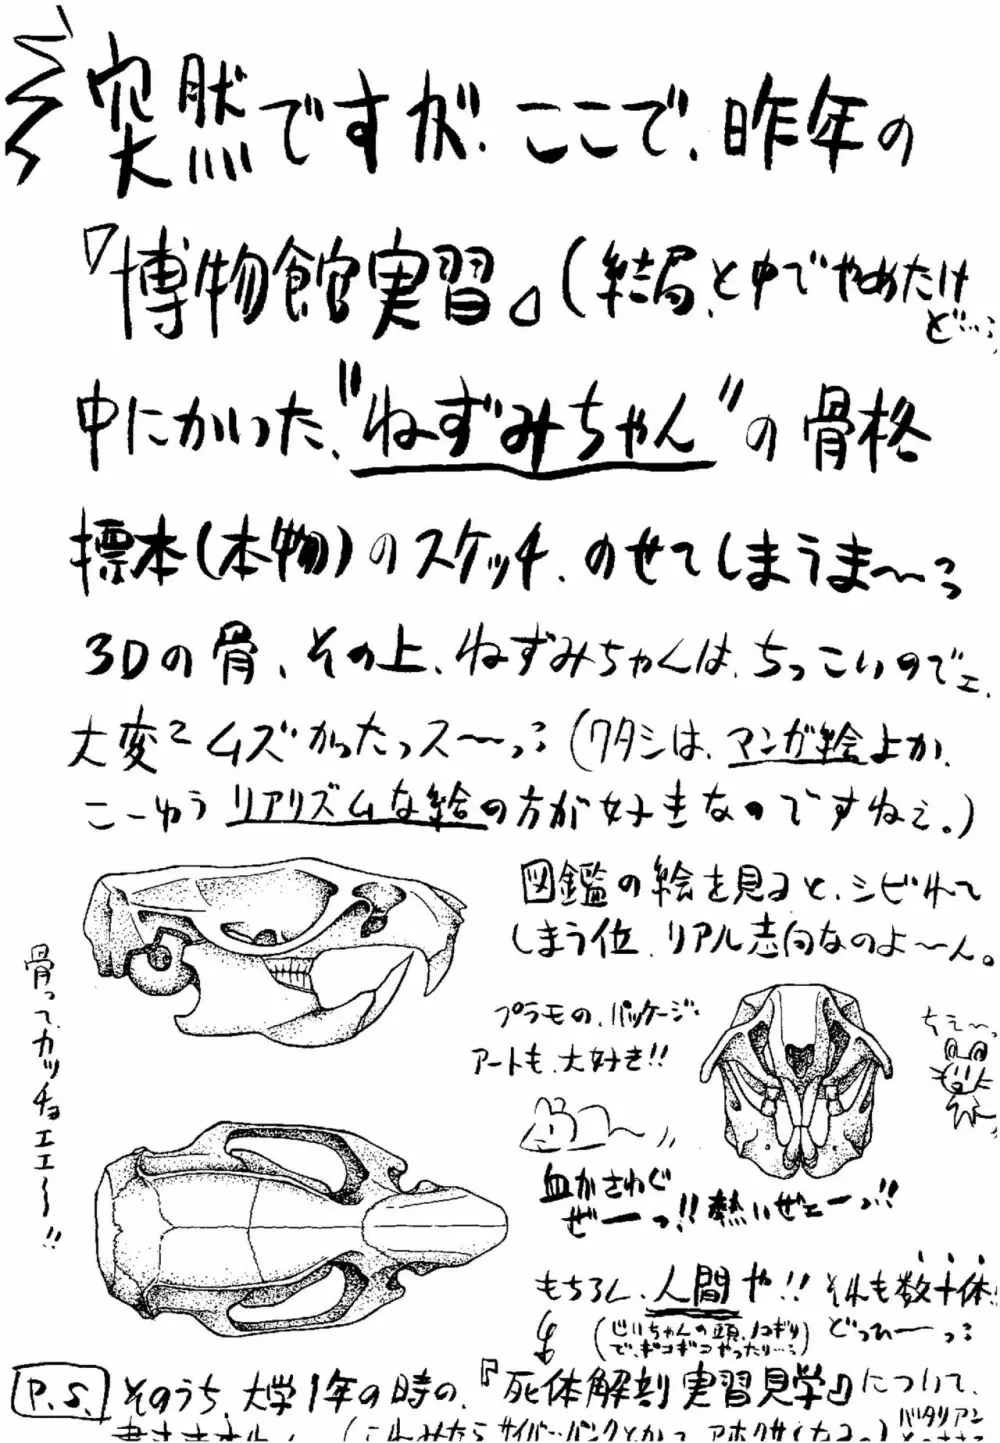 突然ですが、ここで、昨年の
『博物館実習』(結局、と中でやめたけ
ど…)
中にかいた、"ねずみちゃん"の骨格
標本(本物)のスケッチ、のせてしまうま〜っ
3Dの骨、その上、ねずみちゃんは、ちっこいのでェ、
大変でムズかったっス〜っ(ワタシは、マンガ絵よか、
こーゆう リアリズムな絵の方が好きなのですねぇ。)
図鑑の絵を見ると、シビれて
しまう位、リアル志向なのよ〜ん。
骨って、カッチョエエ〜!!
プラモの、パッケージ
アートも、大好き!!
ちぇ〜っ
血がさわぐ
ぜーっ!! 熱いぜェーっ!!
もちろん、人間や!! それも数十体!!
(じいちゃんの頭、ノコギリ
で、ギコギコやったり…) どっひーっ
P.S. そのうち、大学1年の時の、『死体解剖実習見学』について、